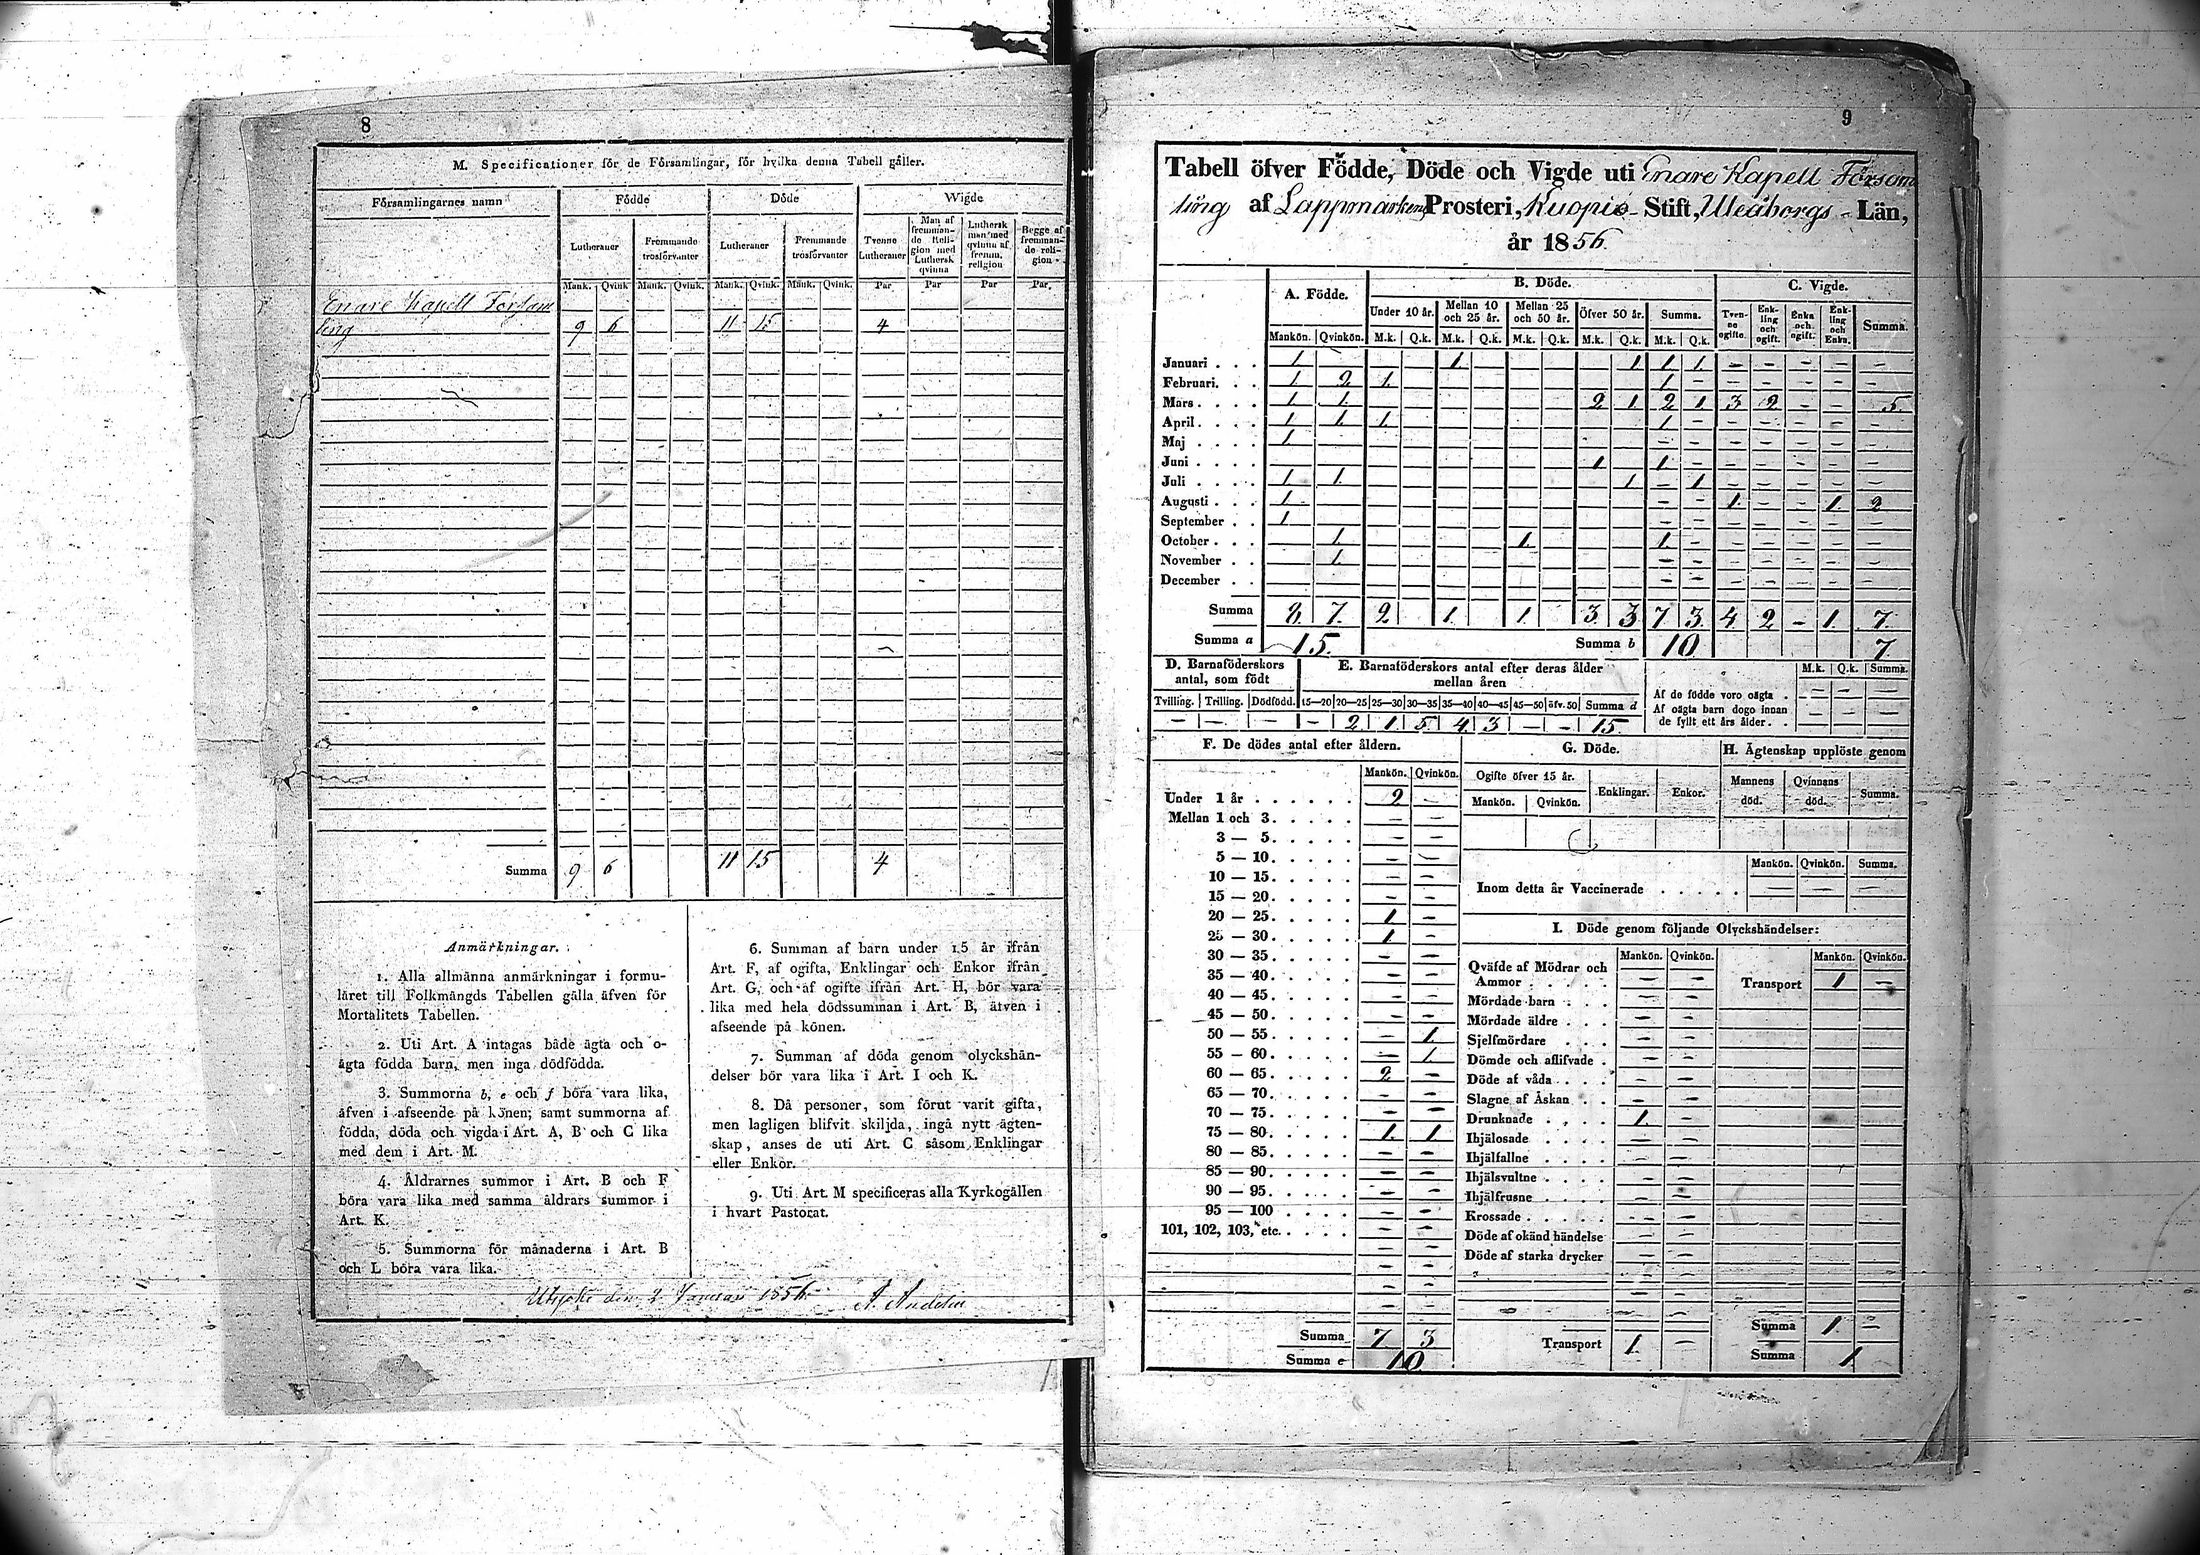 8
M. Specificationer för de Församlingar, för hvilka denna Tabell gäller.
Församlingarnes namn
Födde
Döde
Wigde
Lutheraner
Fremmande trosförvanter
Lutheraner
Fremmande trosförvanter
Tvenne Lutheraner
Man af fremmande Religion med Luthersk qvinna
Luthersk man med qvinna af fremm. religion
Begge af fremmande religion
Mank. Qvink Mank. Qvink. Mank. Qvink. Mank. Qvink. Par Par Par Par.
Enare Kapell Forsam
ling 9 6 11 15 4
Summa 9 6 11 15 4
Anmärkningar.
1. Alla allmänna anmärkningar i formu-
läret till Folkmängds Tabellen gälla äfven för
Mortalitets Tabellen.
2. Uti Art. A intagas både ägta och o-
ägta födda barn, men inga dödfödda.
3. Summorna b, e och f böra vara lika,
äfven i afseende på könen; samt summorna af
födda, döda och vigda i Art. A, B och C lika
med dem i Art. M.
4. Åldrarnes summor i Art. B och F
böra vara lika med samma åldrars summor i
Art. K.
5. Summorna för månaderna i Art. B
och L böra vara lika.
6. Summan af barn under 15 år ifrån
Art. F, af ogifta, Enklingar och Enkor ifrån
Art. G, och af ogifte ifrån Art. H, bör vara
lika med hela dödssumman i Art. B, äfven i
afseende på könen.
7. Summan af döda genom olyckshän-
delser bör vara lika i Art. I och K.
8. Då personer, som förut varit gifta,
men lagligen blifvit skiljda, ingå nytt ägten-
skap, anses de uti Art. C såsom Enklingar
eller Enkor.
9. Uti Art. M specificeras alla Kyrkogällen
i hvart Pastorat.
Utsjoki den 2 Januari 1856 A. Andelin
9
Tabell öfver Födde, Döde och Vigde uti Enare Kapell Försam
ling af Lappmarkens Prosteri, Kuopio Stift, Uleåborgs Län,
år 1856.
A. Födde.
B. Döde.
C. Vigde.
Under 10 år.
Mellan 10 och 25 år.
Mellan 25 och 50 år.
Öfver 50 år.
Summa.
Tvenne ogifte.
Enkling och ogift.
Enka och ogift.
Enkling och Enka.
Summa.
Mankön. Qvinkön. M.k. Q.k. M.k. Q.k. M.k. Q.k. M.k. Q.k. M.k. Q.k.
Januari . . . 1. 1. 1. 1. 1. – – – – –
Februari. . . 1. 2. 1. 1. – – – – – –
Mars. . . . 1. 1. 2. 1. 2. 1. 3. 2. – – 5.
April. . . . 1. 1. 1. 1. – – – – – –
Maj . . . . 1. – – – – – – –
Juni . . . . 1. 1. – – – – – –
Juli . . . . 1. 1. 1. – 1. – – – – –
Augusti . . . 1. – – 1. – – 1. 2.
September . . 1. – – – – – – –
October . . . 1. 1. 1. – – – – – –
November . . 1. – – – – – – –
December . . – – – – – – –
Summa 8. 7. 2. 1. 1. 3. 3 7. 3. 4. 2. – 1. 7.
Summa a 15. Summa b 10 7.
D. Barnaföderskors antal, som födt
Tvilling. Trilling. Dödfödd.
– – –
E. Barnaföderskors antal efter deras ålder mellan åren
15—20 20—25 25—30 30—35 35—40 40—45 45—50 öfv. 50 Summa d
– 2. 1. 5. 4. 3. – – 15.
M.k. Q.k. Summa.
Af de födde voro oägta . – – –
Af oägta barn dogo innan
de fyllt ett års ålder. . – – –
F. De dödes antal efter åldern.
Mankön. Qvinkön.
Under 1 år . . . . . . 2 –
Mellan 1 och 3. . . . . – –
3 — 5. . . . . – –
5 — 10. . . . . – –
10 — 15. . . . . – –
15 — 20. . . . . – –
20 — 25. . . . . 1. –
25 — 30. . . . . 1. –
30 — 35. . . . . – –
35 — 40. . . . . – –
40 — 45. . . . . – –
45 — 50. . . . . – –
50 — 55. . . . . – 1.
55 — 60. . . . . – 1.
60 — 65. . . . . 2. –
65 — 70. . . . . – –
70 — 75. . . . . – –
75 — 80. . . . . 1. 1
80 — 85. . . . . – –
85 — 90. . . . . – –
90 — 95. . . . . – –
95 — 100 . . . . – –
101, 102, 103, etc. . . . . – –
Summa 7. 3
Summa e 10
G. Döde.
Ogifte öfver 15 år.
Mankön. Qvinkön.
Enklingar.
Enkor.
H. Ägtenskap upplöste genom
Mannens död.
Qvinnans död.
Summa.
Mankön. Qvinkön. Summa.
Inom detta år Vaccinerade . . . . . – – –
I. Döde genom följande Olyckshändelser:
Mankön. Qvinkön.
Qväfde af Mödrar och
Ammor . . . . . – –
Mördade barn . . . – –
Mördade äldre . . . – –
Sjelfmördare . . . – –
Dömde och aflifvade . – –
Döde af våda . . . – –
Slagne af Åskan . . – –
Drunknade . . . . 1. –
Ihjälosade . . . . – –
Ihjälfallne . . . . – –
Ihjälsvultne . . . . – –
Ihjälfrusne . . . . – –
Krossade . . . . . – –
Döde af okänd händelse – –
Döde af starka drycker – –
Transport 1. –
Mankön. Qvinkön.
Transport 1. –
Summa 1. –
Summa 1